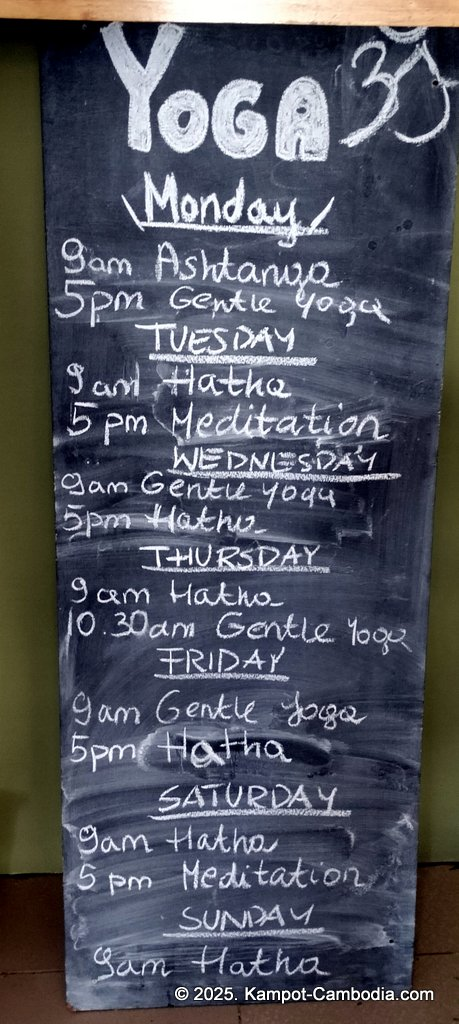 YOGA ॐ
Monday
9am Ashtanga
5pm Gentle Yoga
TUESDAY
9am Hatha
5 pm Meditation
WEDNESDAY
9am Gentle Yoga
5pm Hatha
THURSDAY
9am Hatha
10.30am Gentle Yoga
FRIDAY
9am Gentle Yoga
5pm Hatha
SATURDAY
9am Hatha
5 pm Meditation
SUNDAY
9am Hatha
© 2025. Kampot-Cambodia.com